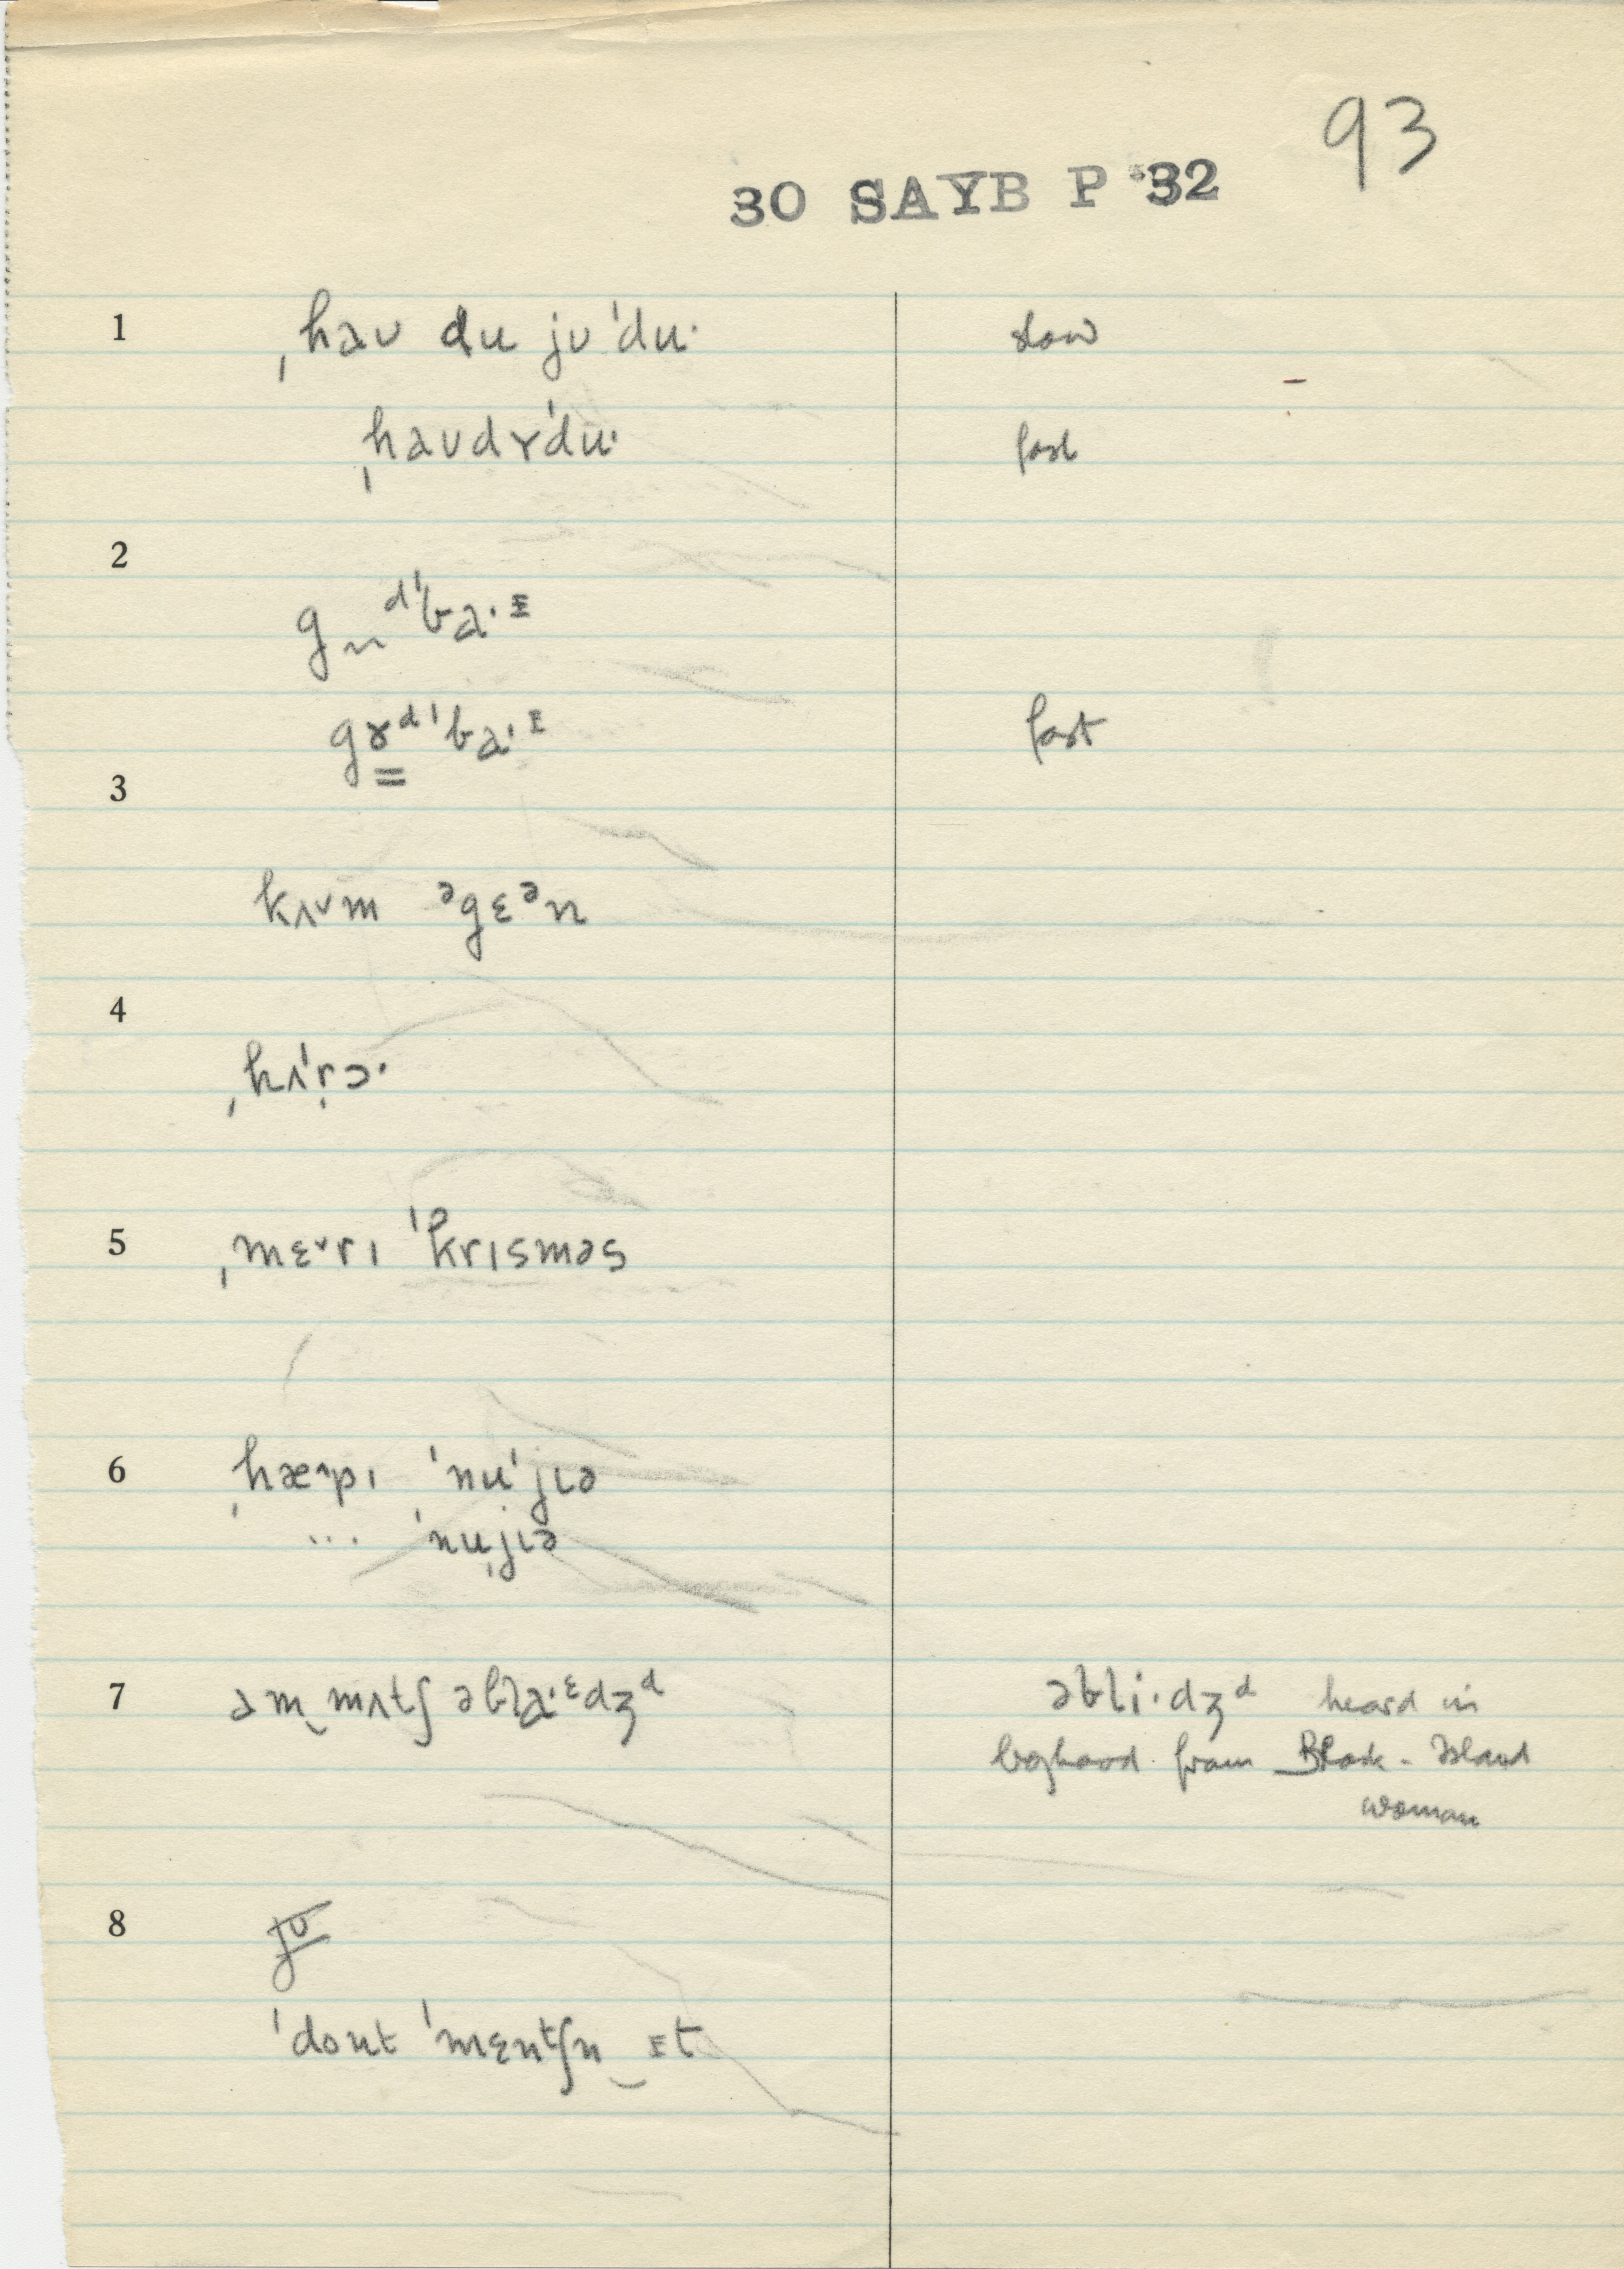 93
30 SAYB P '32
1 ˌhaʊ du jʊ ˈdu· slow
ˌhaʊdɤˈdu· fast
2
gn̩ᵈˈba·ᶦ
gɤ̳ᵈˈba·ᶦ fast
3
kʌ˅m ᵊgɛᵊn
4
ˌhʌˈrɔ·
5 ˌmɛ˅rɪ ˈkrɪsməs
6 ˌhæ˄pɪ ˈnuˈjɪə
... ˈnuˌjɪə
7 əm‿mʌtʃ əbla·ᵋdʒᵈ əbli·dʒᵈ heard in
boyhood from Block-Island
woman
8 jʊ
ˈdont ˈmɛntʃn‿ɪt